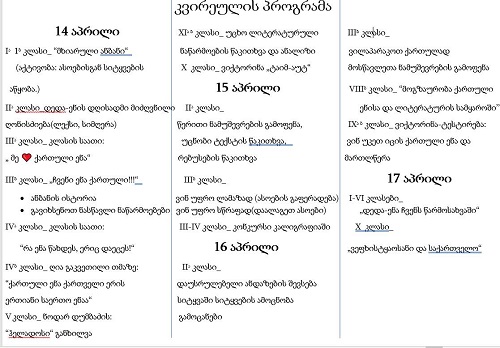 კვირეულის პროგრამა
14 აპრილი
I² 1ᵇ კლასი_ "მხიარული ანბანი"
(აქტივობა: ასოებისგან სიტყვების
აწყობა.)
II² კლასი_დედა-ენის დღისადმი მიძღვნილი
ღონისძიება(ლექსი, სიმღერა)
III² კლასი_ კლასის საათი:
„ მე ❤ ქართული ენა"
IIIᵇ კლასი_ „ჩვენი ენა ქართული!!!"_
• ანბანის ისტორია
• გავიხსენოთ ნასწავლი ნაწარმოებები
IV² კლასი_ კლასის საათი:
"რა ენა წახდეს, ერიც დაეცეს!"
IVᵇ კლასი_ ღია გაკვეთილი თმაზე:
"ქართული ენა ქართველი ერის
ერთიანი საერთო ენაა"
V კლასი_ ნოდარ დუმბაძის:
"ჰელადოსი" განხილვა
XI კლასი_ უცხო ლიტერატურული
ნაწარმოების წაკითხვა და ანალიზი
X კლასი_ ვიქტორინა „ტაიმ-აუტ"
15 აპრილი
II² კლასი_
წერითი ნამუშევრების გამოფენა,
უცნობი ტექსტის წაკითხვა,
რებუსების წაკითხვა
IIIᵇ კლასი_
ვინ უფრო ლამაზად (ასოების გაფერადება)
ვინ უფრო სწრაფად(დაალაგეთ ასოები)
III-IV კლასი_ კონკურსი კალიგრაფიაში
16 აპრილი
II² კლასი_
დაუსრულებელი ანდაზების შევსება
სიტყვაში სიტყვების ამოცნობა
გამოცანები
IIIᵇ კლასი_
ვილაპარაკოთ ქართულად
მოსწავლეთა ნამუშევრების გამოფენა
VIIIᵇ კლასი_ "მოგზაურობა ქართული
ენისა და ლიტერატურის სამყაროში"
IX კლასი_ ვიქტორინა-ტესტირება:
ვინ უკეთ იცის ქართული ენა და
მართლწერა
17 აპრილი
I-VI კლასებ_
„დედა-ენა ჩვენს წარმოსახვაში"
X კლასი
„ვეფხისტყაოსანი და საქართველო"